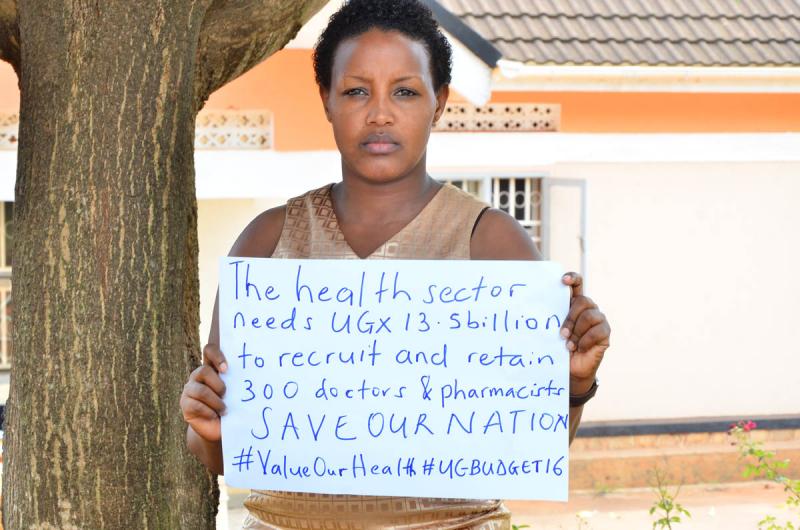 The health sector
needs UGX 13.5billion
to recruit and retain
300 doctors & pharmacists
SAVE OUR NATION
#ValueOurHealth #UGBUDGET16